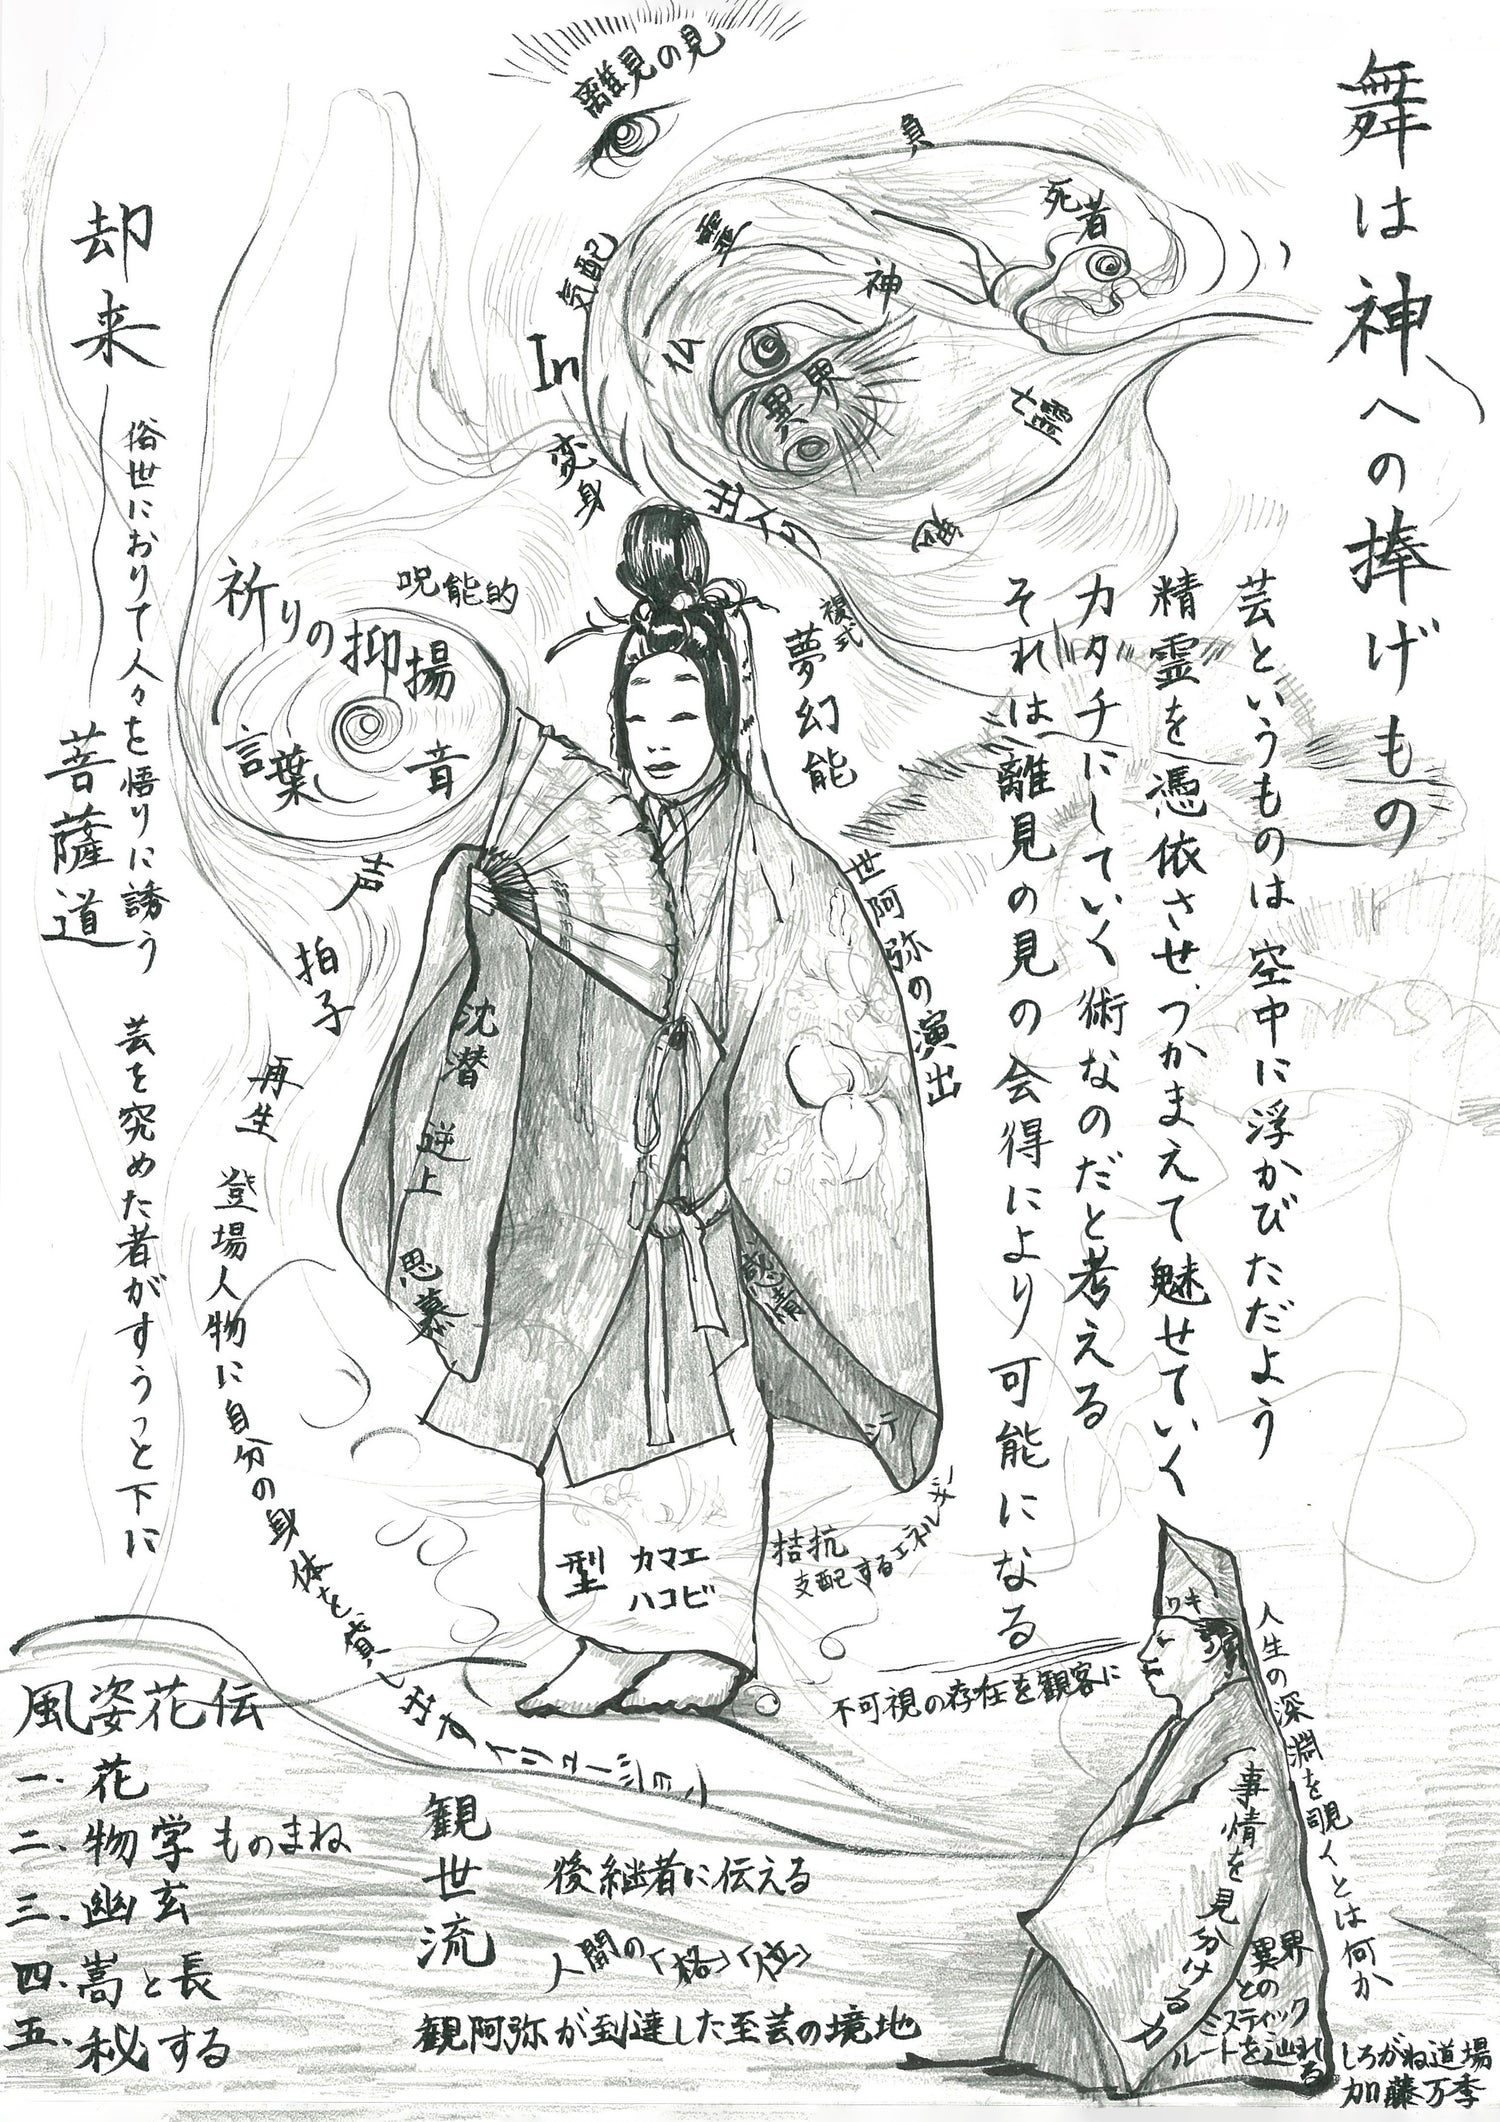 舞は神への捧げもの
芸というものは空中に浮かびただよう
精霊を憑依させ、つかまえて魅せていく
カタチにしていく術なのだと考える
それは離見の見の会得により可能になる
離見の見
負
死者
霊
神
気配
仏
異界
亡霊
In
変身
複式
夢幻能
世阿弥の演出
呪能的
祈りの抑揚
言葉
音
声
拍子
再生
登場人物に自分の身体を貸し出す
却来
菩薩道
俗世におりて人々を悟りに誘う
芸を究めた者がすうっと下に
沈潜
逆上
思慕
感情
シテ
型
カマエ
ハコビ
拮抗
支配するエネルギー
不可視の存在を観客に
ワキ
人生の深淵を覗くとは何か
事情を見分ける力
異界
との
ミスティック
ルートを辿れる
風姿花伝
一.花
二.物学ものまね
三.幽玄
四.嵩と長
五.秘する
観世流
後継者に伝える
人間の「格」「位」
観阿弥が到達した至芸の境地
しろがね道場
加藤万季